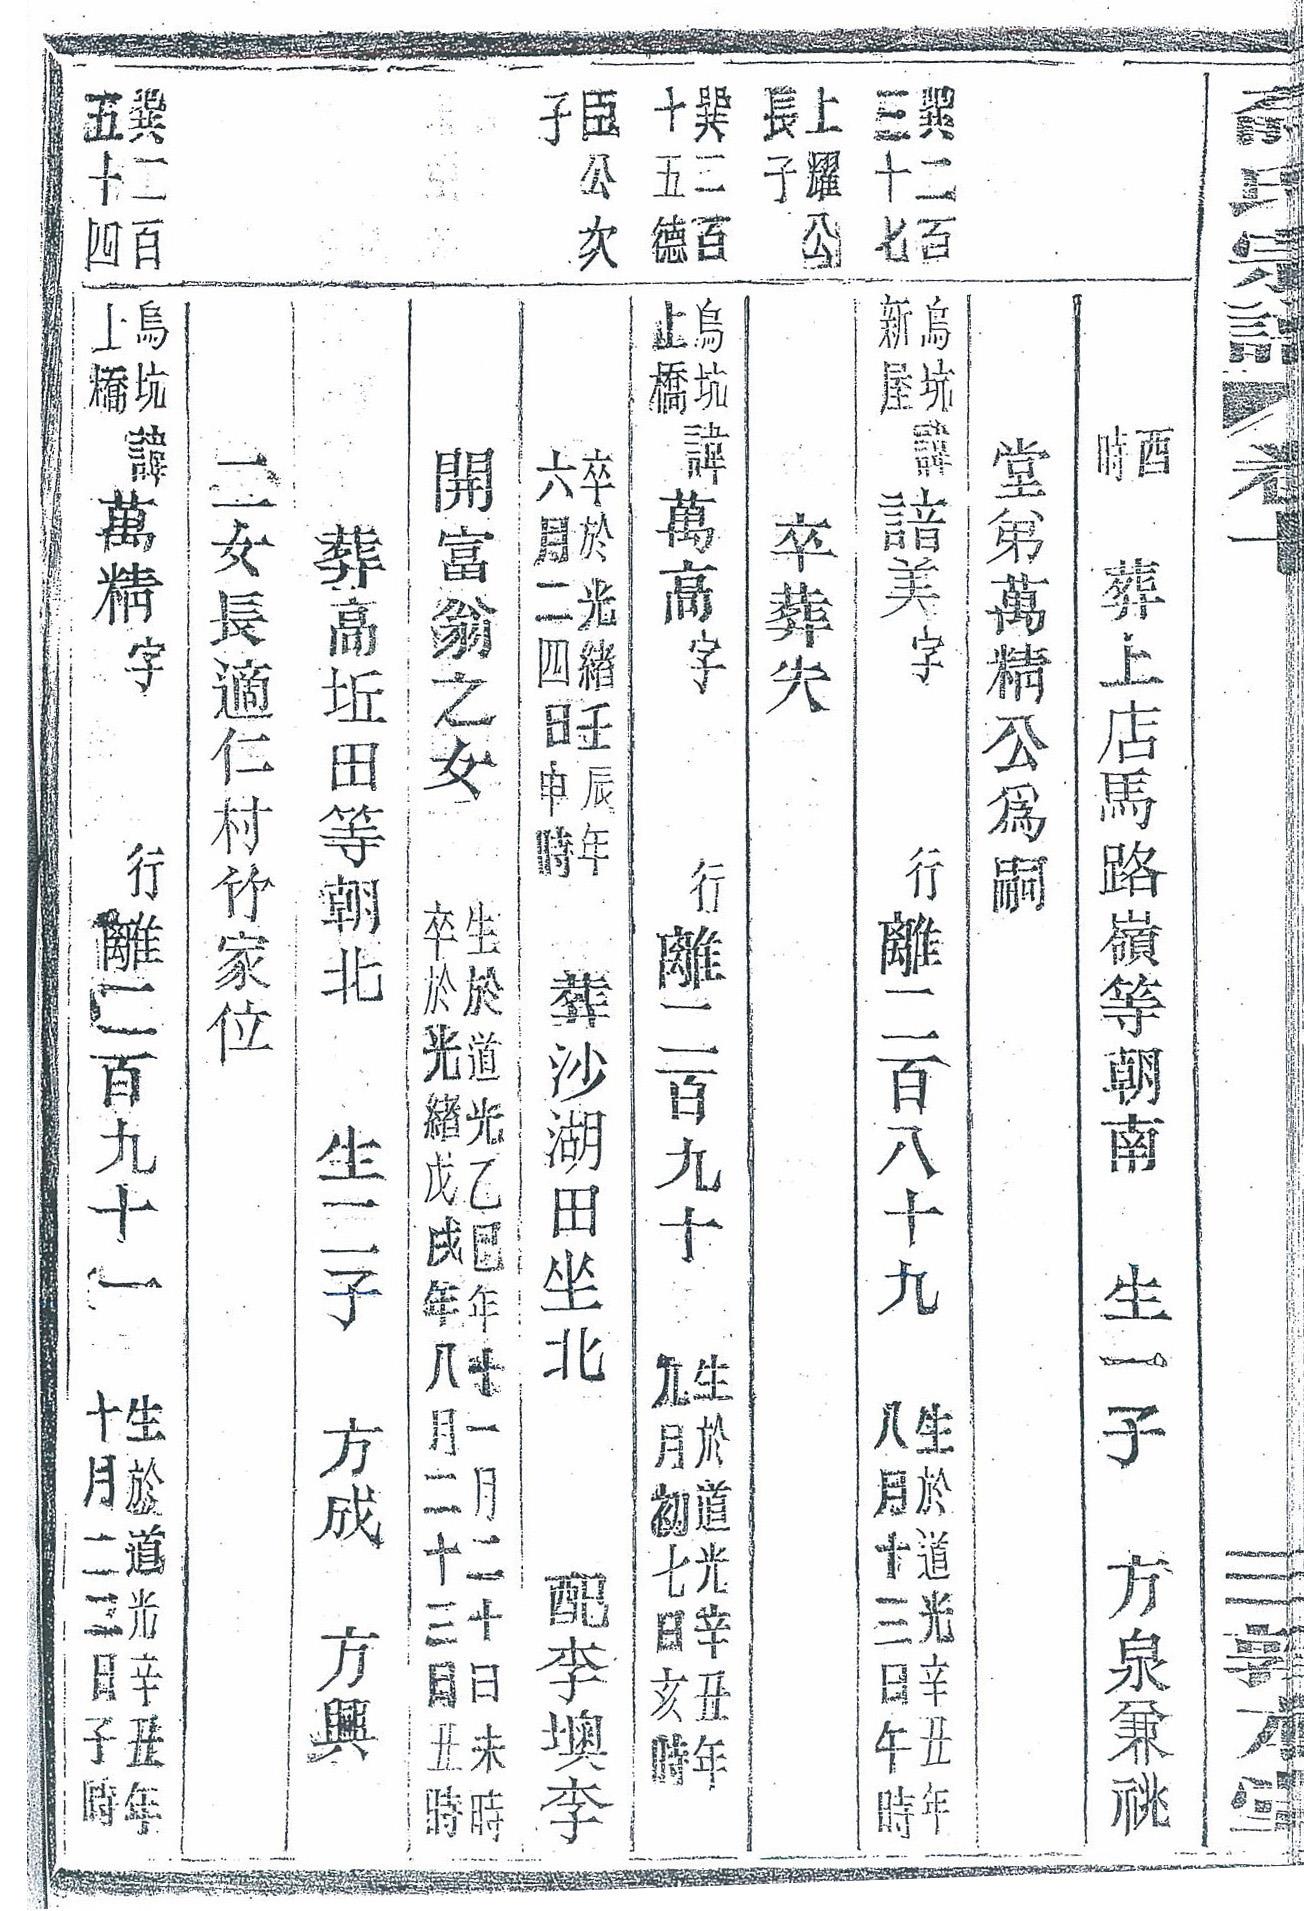 氏宗譜 卷十
敦本堂
酉時 葬上店馬路嶺等朝南 生一子 方泉兼祧
堂弟萬精公爲嗣
巽二百三十七 烏坑新屋 諱諳美字 行離二百八十九 生於道光辛丑年八月十三日午時
上耀公長子 卒葬失
巽二百十五德 烏坑上橋 諱萬高字 行離二百九十 生於道光辛丑年九月初七日亥時
臣公次子 卒於光緒壬辰年六月二四日申時 葬沙湖田坐北 配李墺李
開富翁之女 生於道光乙巳年十一月二十日未時 卒於光緒戊戌年八月二十三日丑時
葬高坵田等朝北 生二子 方成 方興
二女長適仁村竹家位
巽二百五十四 烏坑上橋 諱萬精字 行離二百九十一 生於道光辛丑年十月二三日子時